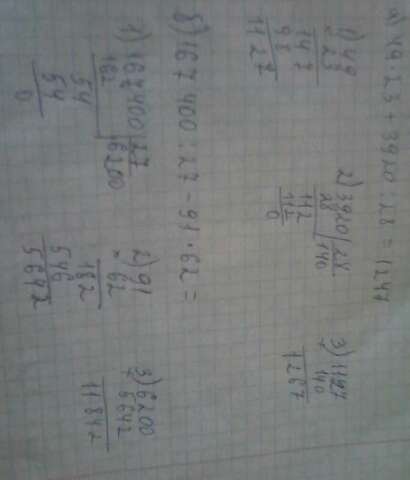 а) 49·23+3920:28=1247
1) 49
× 23
147
98
1127
2) 3920 | 28
28 140
112
112
0
3) 1127
140
1267
б) 167 400 : 27 - 91 · 62 =
1) 167400 | 27
162 6200
54
54
0
2) 91
× 62
182
546
5642
3) 6200
+ 5642
11842